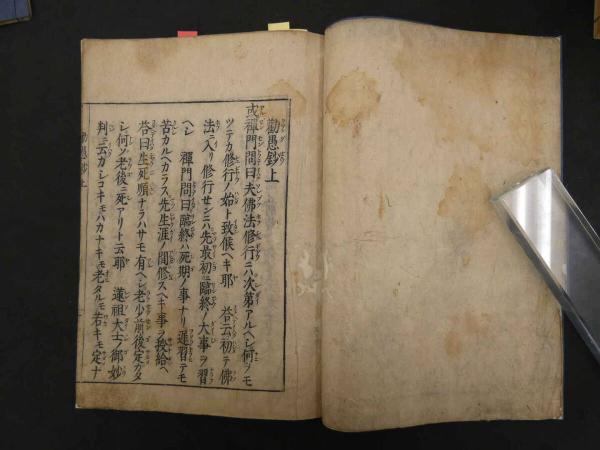 勸愚鈔上
或禪門問曰夫佛法修行ニハ次第アルヘシ何ヲモ
ツテカ修行ノ始ト致候ヘキ耶 答云初テ佛
法ニ入リ修行センニハ先最初ニ臨終ノ大事ヲ習
ヘシ 禪門問曰臨終ハ死期ノ事ナリ遅習テモ
苦カルヘカラス先生涯ノ間修スヘキ事ヲ授給ヘ
答曰生死順ナラハサモ有ヘシ老少前後定カタ
シ何ソ老後ニ死アリト云耶 蓮祖大士ノ御妙
判ニ云カシコキモハカナキモ老タルモ若キモ定ナ
勸愚鈔上